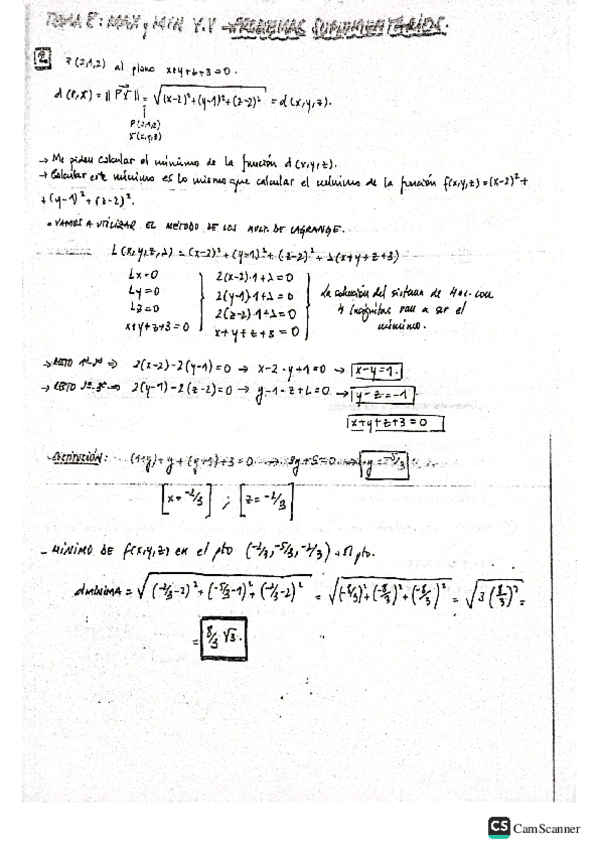 TEMA 8: MAX y MIN V.V → PROBLEMAS SUPLEMENTARIOS.
2 P(2,1,2) al plano x+y+z+3=0.
d(P,X) = ||PX|| = √(x-2)²+(y-1)²+(z-2)² = d(x,y,z).
P(2,1,2)
X(x,y,z)
→ Me piden calcular el mínimo de la función d(x,y,z).
→ Calcular este mínimo es lo mismo que calcular el mínimo de la función f(x,y,z)=(x-2)²+
+(y-1)²+(z-2)².
• VAMOS A UTILIZAR EL MÉTODO DE LOS MULT. DE LAGRANGE.
L(x,y,z,λ) = (x-2)²+(y-1)²+(z-2)²+λ(x+y+z+3)
Lx=0 2(x-2)·1+λ=0
Ly=0 2(y-1)·1+λ=0 La solución del sistema de 4 ec. con
Lz=0 2(z-2)·1+λ=0 4 incógnitas van a ser el
x+y+z+3=0 x+y+z+3=0 mínimo.
→ RESTO 1ª-2ª ⇒ 2(x-2)-2(y-1)=0 → x-2-y+1=0 → x-y=1.
→ RESTO 2ª-3ª ⇒ 2(y-1)-2(z-2)=0 → y-1-z+2=0 → y-z=-1
x+y+z+3=0
- SUSTITUCIÓN: (1+y)+y+(y+1)+3=0 → 3y+5=0 → y=-5/3
x=-2/3 ; z=-2/3
- MÍNIMO DE f(x,y,z) en el pto (-2/3,-5/3,-2/3)
dMÍNIMA = √(-2/3-2)²+(-5/3-1)²+(-2/3-2)² = √(-8/3)²+(-8/3)²+(-8/3)² = √3(8/3)² =
= 8/3 √3.
CS CamScanner